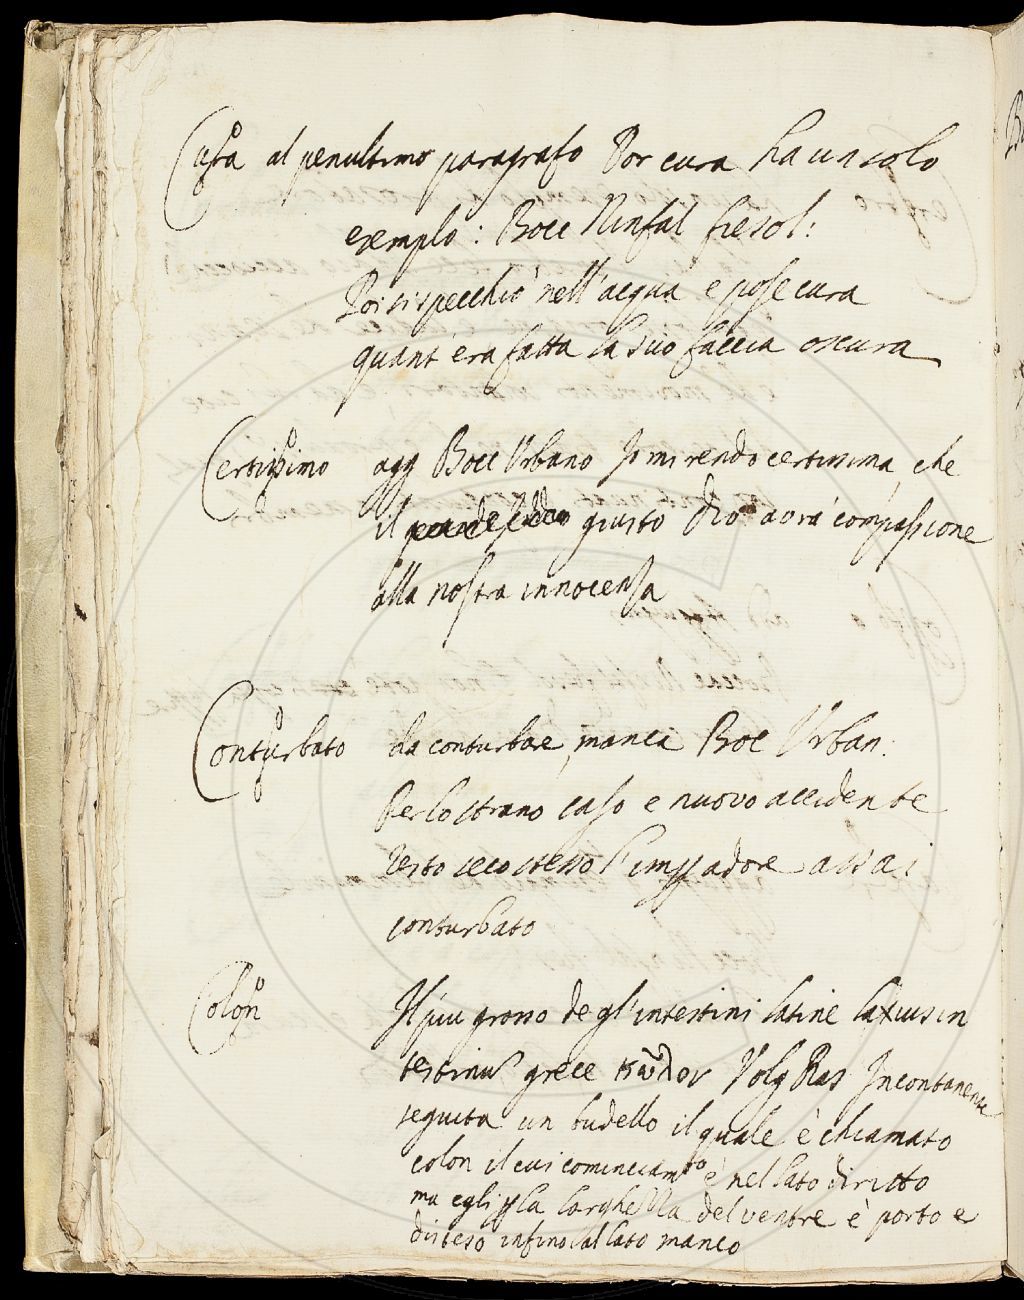 Cura al penultimo paragrafo Por cura ha un solo
esemplo: Bocc Ninfal fiesol:
Poi si specchiò nell'acqua e pose cura
quant'era fatta la suo faccia oscura
Certissimo agg Bocc Urbano Io mi rendo certissima, che
il giusto Dio avrà compassione
alla nostra innocensa
Conturbato da conturbae, manca Boc Urban:
Per lo strano caso e nuovo accidente
resto seco stesso l'impadore assai
conturbato
Colon Il piu grosso degl'intestini latine laxius in
testinu grece κῶλον Volg Ras Incontanente
seguita un budello il quale è chiamato
colon il cui cominciamto è nel lato diritto
ma egli p la larghezza del ventre è porto e
disteso infino al lato manco